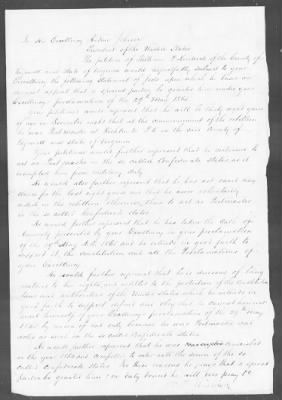 To His Excellency Andrew Johnson
President of the United States
The petition of Nathan P. of the County of
and State of Virginia would respectfully submit to your
Excellency the following Statement of facts upon which he bases an
earnest appeal that a special pardon be granted him under your
Excellency's proclamation of the 29th May 1865
Your petitioner would represent that he will be thirty eight years
of age in November next that at the commencement of the rebellion
he was Post Master at P.O. in the said County of
and State of Virginia
Your petitioner would further represent that he continued to
act as Post master in the so called Confederate States as it
exempted him from military duty
He would also further represent that he has not owned any
slaves for the last eight years and that he never voluntarily
aided in the rebellion otherwise than to act as Postmaster
in the so called Confederate States
He would further represent that he has taken the Oath of
Amnesty prescribed by your Excellency in your proclamation
of the 29th May A.D. 1865 and he intends in good faith to
support it the constitution and all the Proclamations of
your Excellency
He would further represent that he is desirous of being
restored to his rights and entitled to the protection of the Constitution
laws and authorities of the United States which he intends in
good faith to support defend and obey that he cannot avail
himself of your Excellency's proclamation of the 29th May
1865 by reason of not only because he was Postmaster and
acted as such in the so called Confederate States
He would further represent that he was conscripted
in the year and compelled to take
called Confederate States. For these reasons he prays that a special
pardon be granted him & in duty bound he will ever pray &c